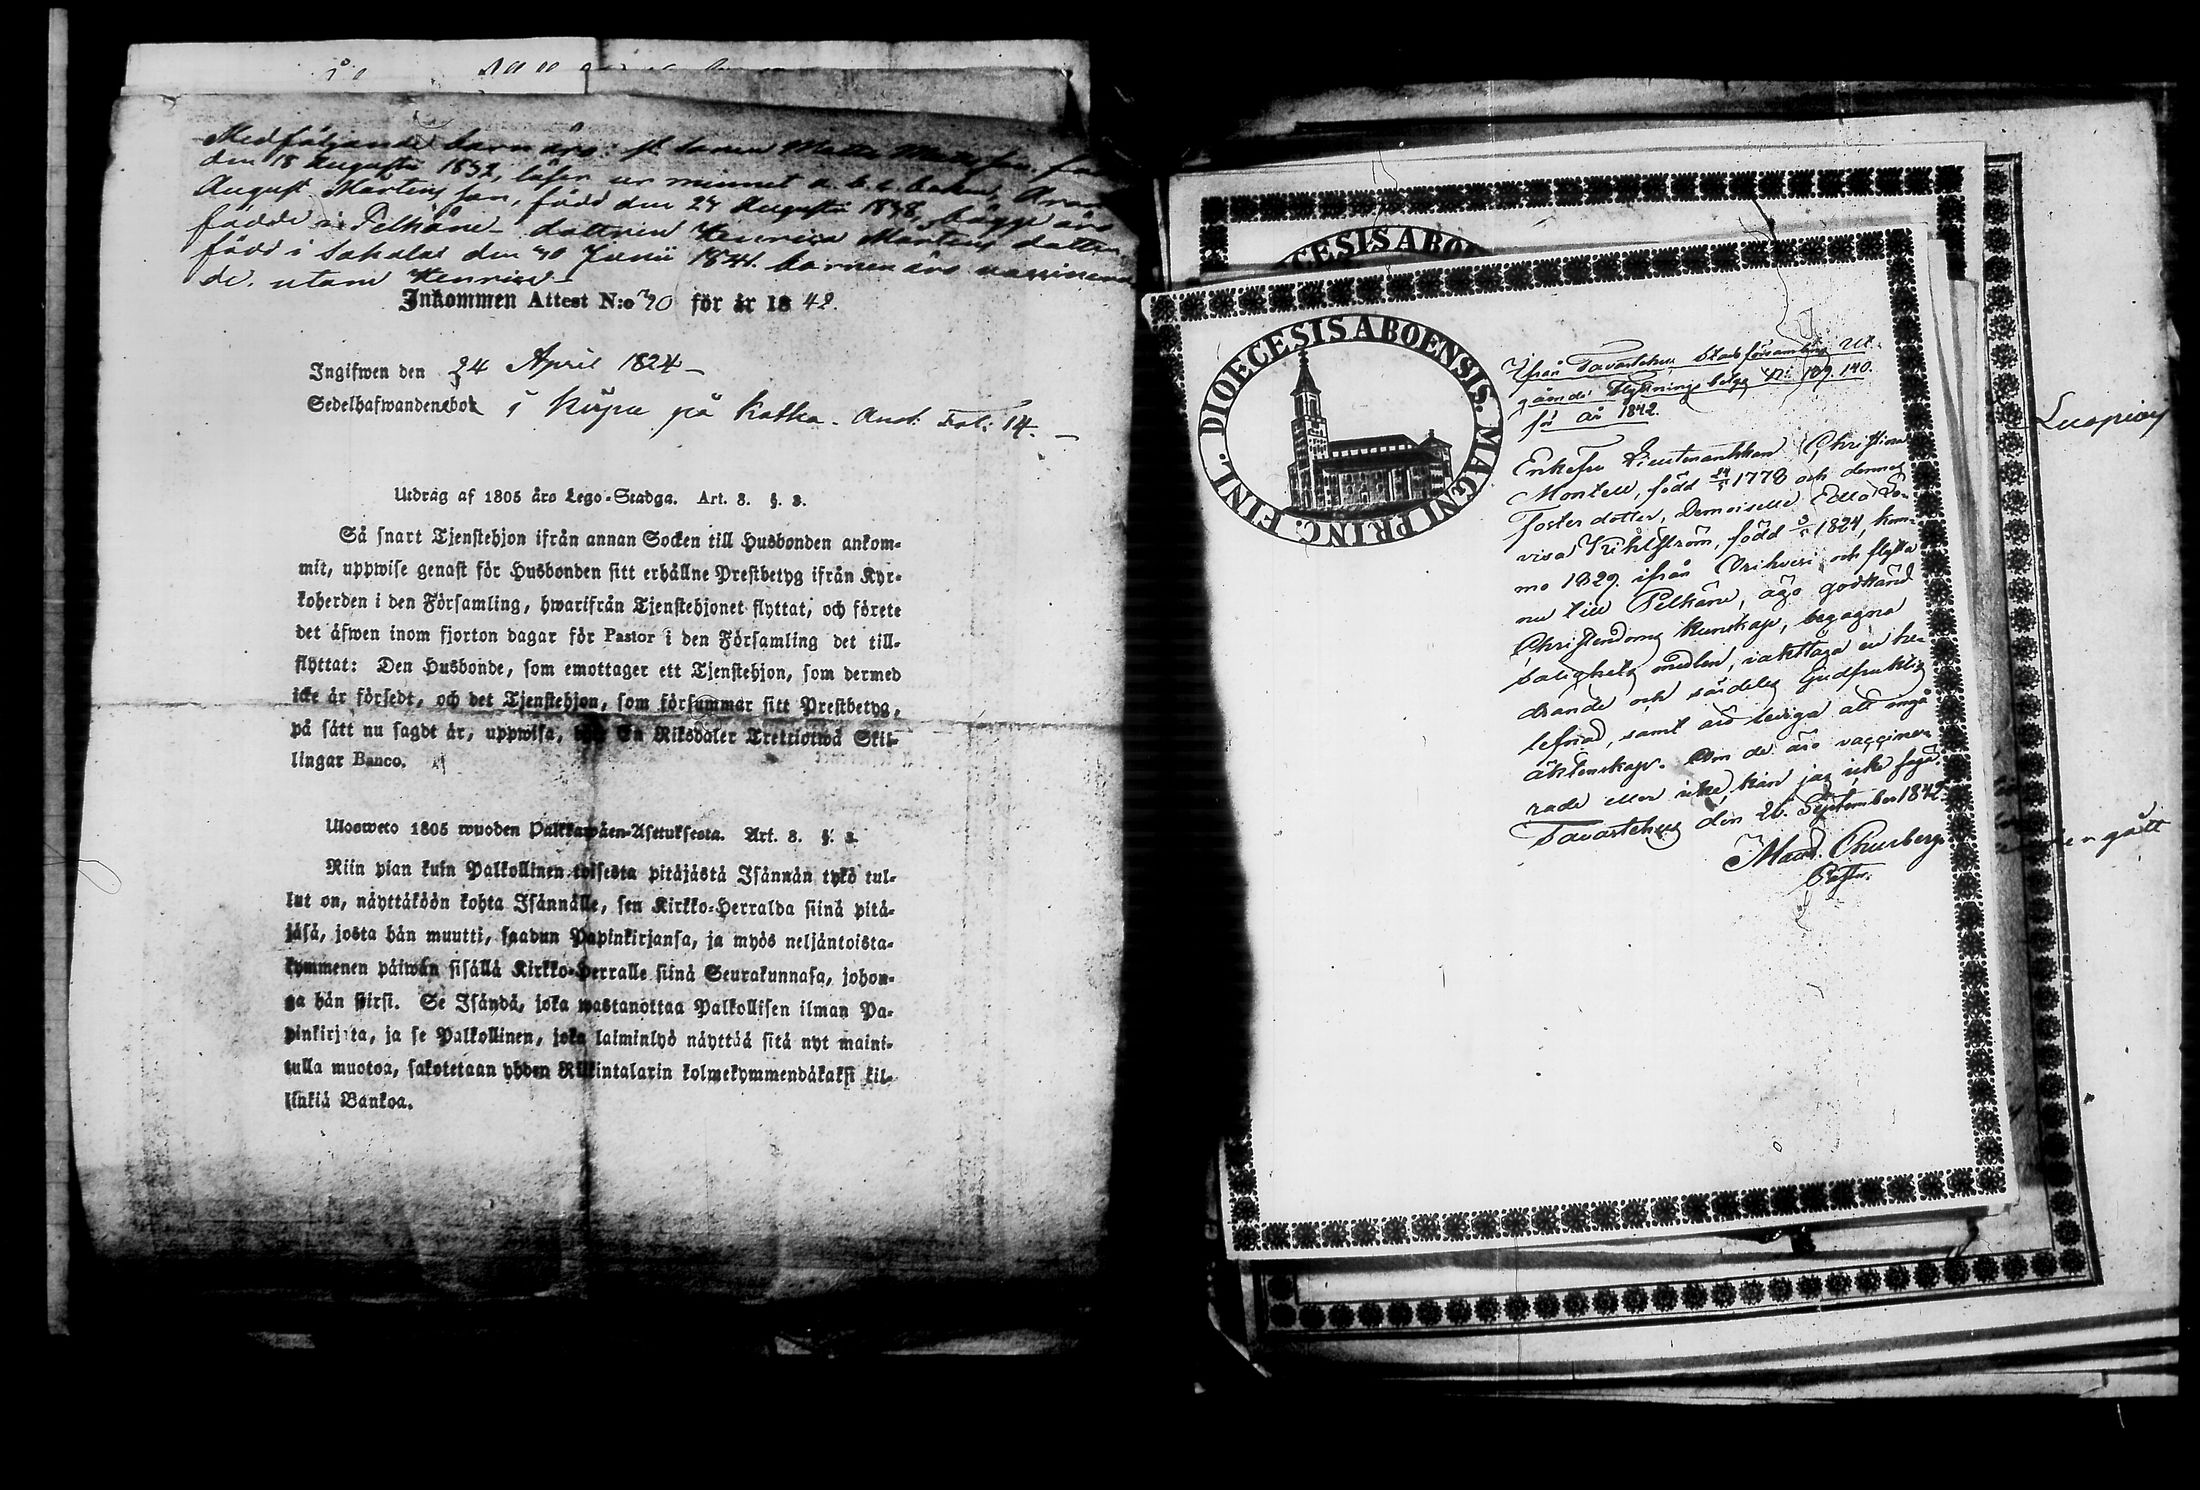 Medföljande barn äro: sonen
den 18 Augusti 1832, läser ur minnet a. b. c. boken,
August Mårtens son, född den 24 Augusti 1838, bägge äro
födde i Pelkäne - dottren Henrica Mårtens dotter
född i Sahalax den 30 Junii 1841. barnen äro vaccinera
de. utom Henrica -
Inkommen Attest N:o 20 för år 1842.
Ingifwen den 24 April 1824 -
Sedelhafwandens bok i Kirpu på Kotka. Fol: 14. -
Utdrag af 1805 års Lego-Stadga. Art. 3. §. 3.
Så snart Tjenstehjon ifrån annan Socken till Husbonden ankom-
mit, uppwise genast för Husbonden sitt erhållne Prestbetyg ifrån Kyr-
koherden i den Församling, hwarifrån Tjenstehjonet flyttat, och förete
det äfwen inom fjorton dagar för Pastor i den Församling det till-
flyttat: Den Husbonde, som emottager ett Tjenstehjon, som dermed
icke är försedt, och det Tjenstehjon, som försummar sitt Prestbetyg,
på sätt nu sagdt är, uppwisa, En Riksdaler Trettiotwå Skil-
lingar Banco.
Ulosweto 1805 wuoden Palkkawäen-Asetuksesta. Art. 3. §. 3.
Niin pian kuin Palkollinen toisesta pitäjästä Isännän tykö tul-
lut on, näyttäköön kohta Isännälle, sen Kirkko-Herralda siinä pitä-
jäsä, josta hän muutti, saadun Papinkirjansa, ja myös neljäntoista-
kymmenen päiwän sisällä Kirkko-Herralle siinä Seurakunnasa, johon-
ga hän siirsi. Se Isändä, joka wastanottaa Palkollisen ilman Pa-
pinkirjata, ja se Palkollinen, joka laiminlyö näyttää sitä nyt maini-
tulla muotoa, sakotetaan yhden Riikintalarin kolmekymmendäkaksi kil-
linkiä Bankoa.
DIOECESIS ABO
DIOECESIS ABOENSIS. MAGNI PRINC. FINL.
Ifrån Tavastehus Stadsförsamling Ut-
gående Flyttnings betyg N:o 139. 140.
för år 1842.
Enkefru Lieutenantskan Christina
Montell, född 24/5 1778 och dennes
fosterdotter, Demoiselle Edla Lo-
visa Kihlström, född 1824, kom-
mo 1829 ifrån Orihvesi och flytta
nu till Pelkäne, äga godkänd
Christendoms kunskap, begagna
salighets medlen, iakttaga en he-
drande och särdeles Gudfruktig
lefnad, samt äro lediga att ingå
äktenskap. Om de äro vaccine-
rade eller icke, kan jag icke säga.
Tavastehus den 26 September 1842.
Churberg
Pastor.